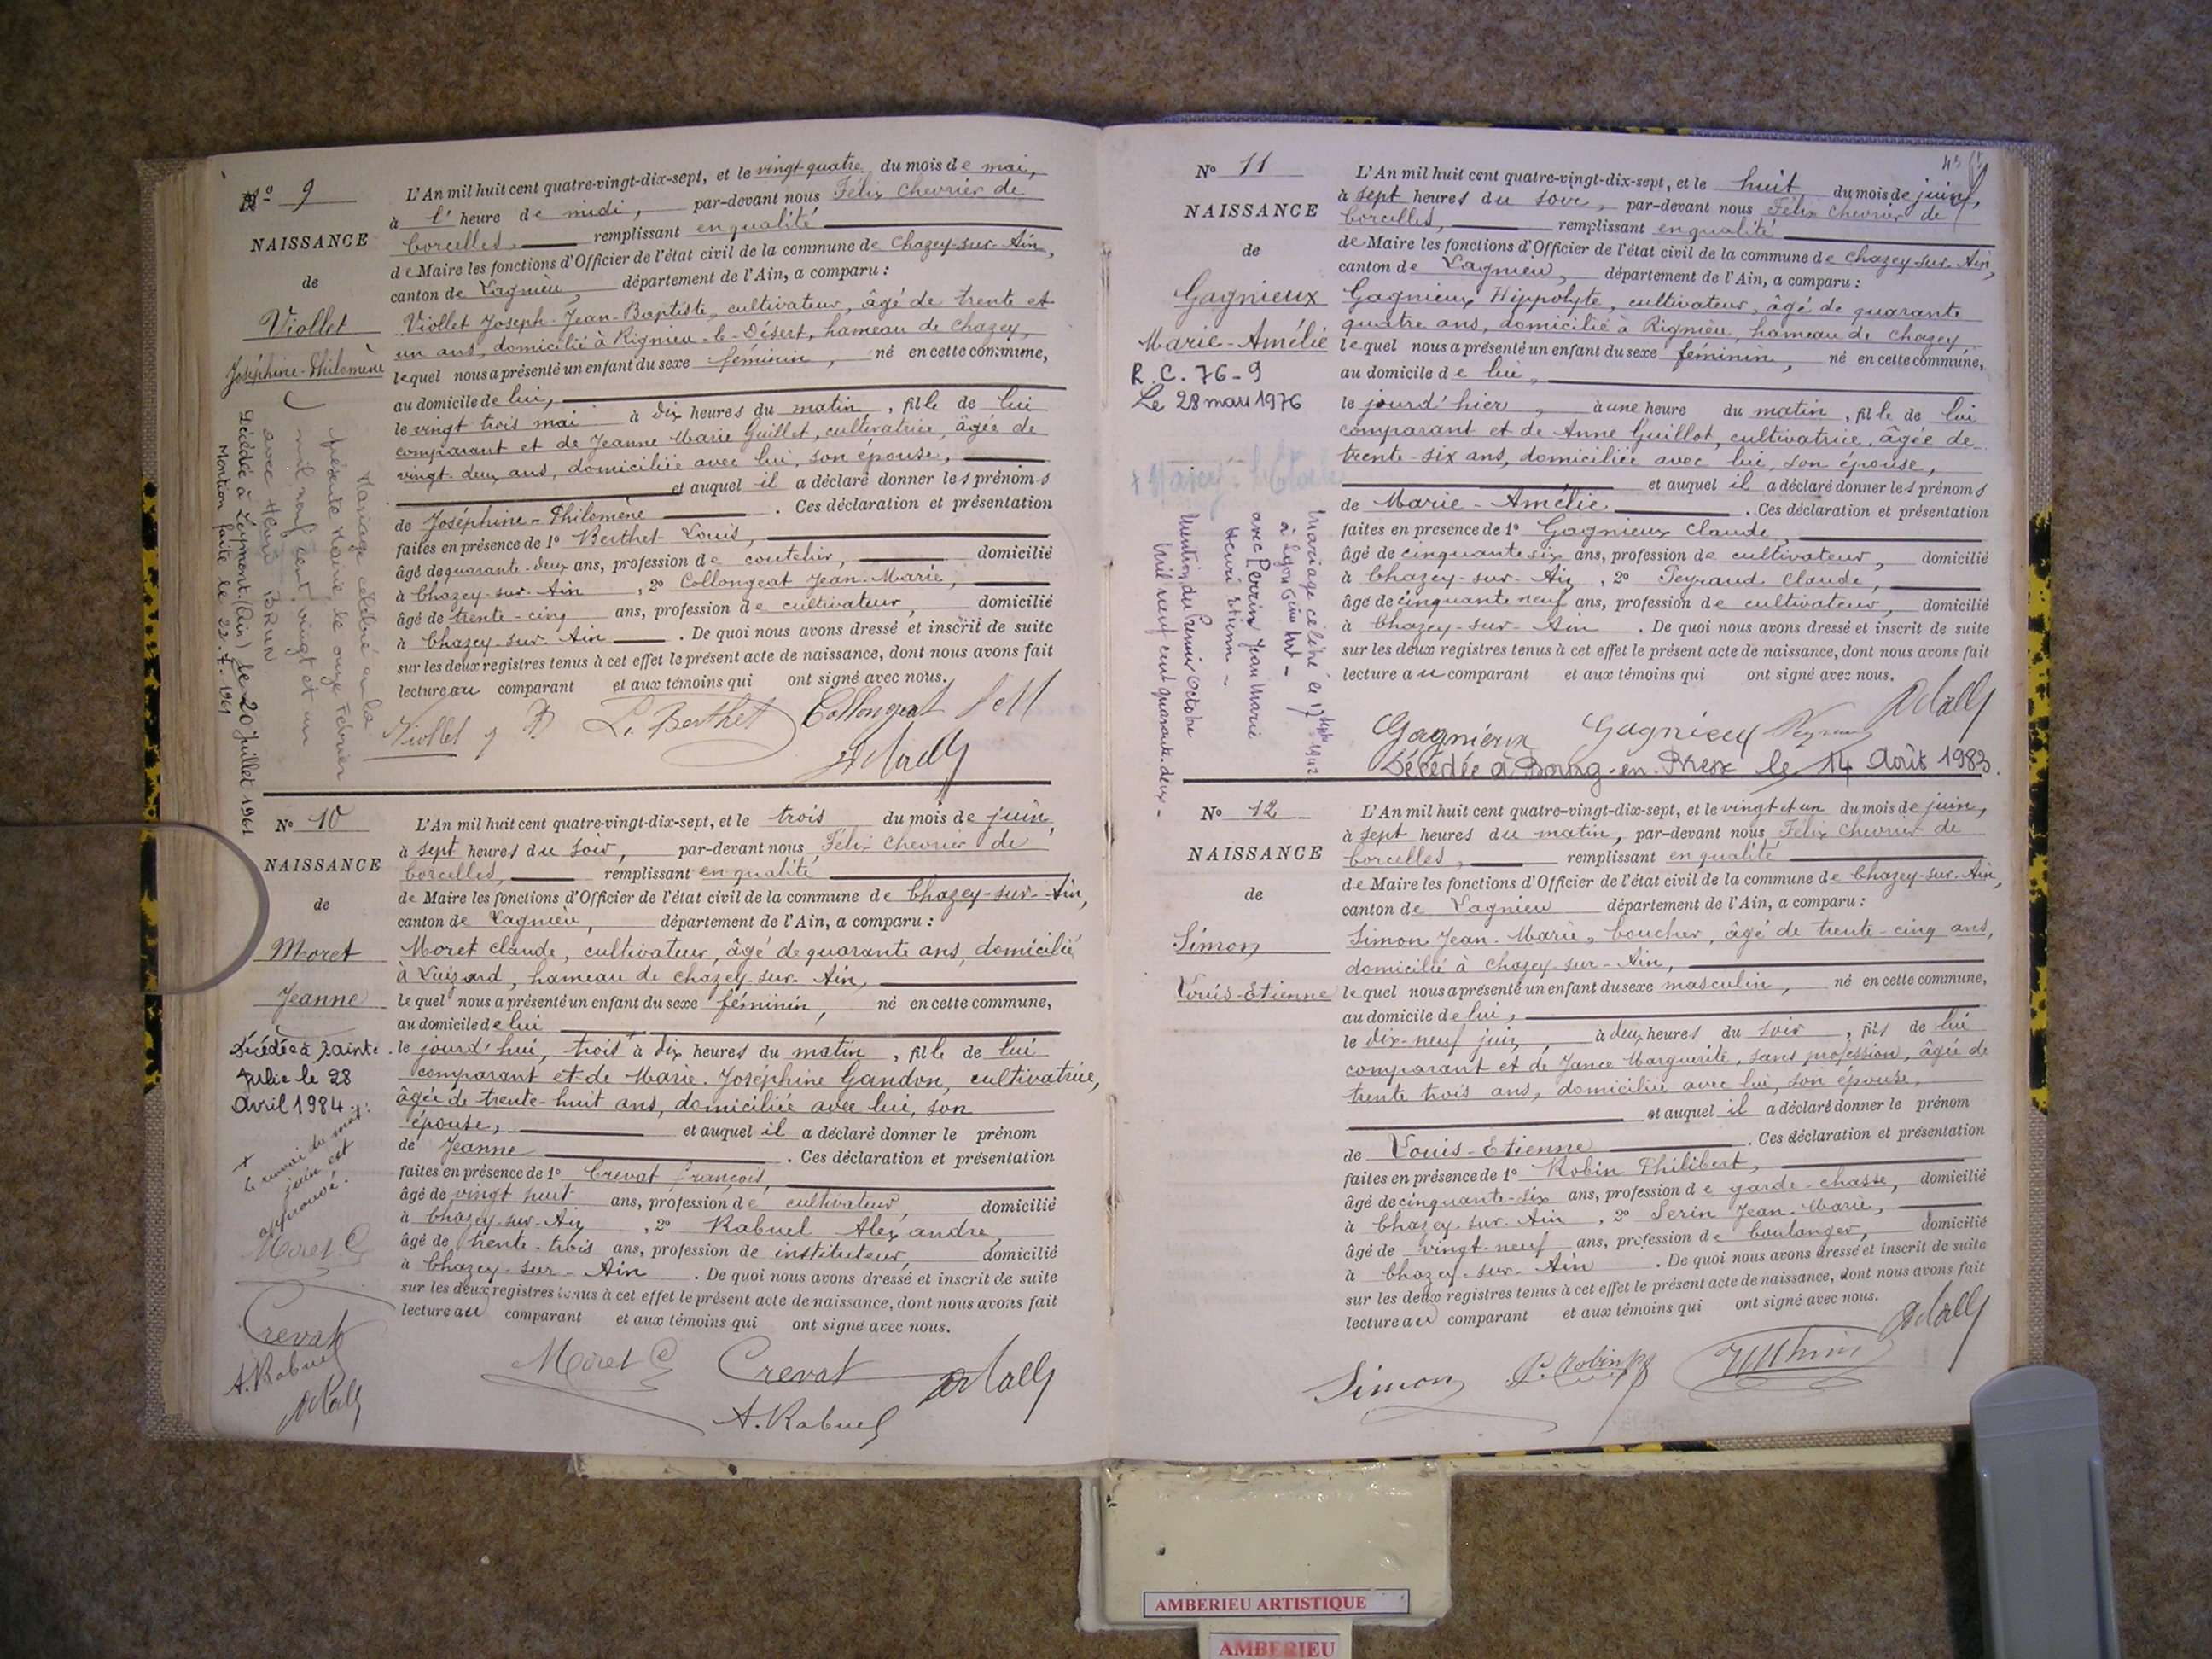 Nº 9
NAISSANCE
de
Viollet
Joséphine-Philomène
L'An mil huit cent quatre-vingt-dix-sept, et le vingt-quatre du mois de mai,
à l' heure de midi, par-devant nous Félix Chevrier de
Corcelles, remplissant en qualité
de Maire les fonctions d'Officier de l'état civil de la commune de Chazey-sur-Ain,
canton de Lagnieu, département de l'Ain, a comparu :
Viollet Joseph-Jean-Baptiste, cultivateur, âgé de trente et
un ans, domicilié à Rignieu-le-Désert, hameau de Chazey,
lequel nous a présenté un enfant du sexe féminin, né en cette commune,
au domicile de lui,
le vingt trois mai à dix heures du matin, fille de lui
comparant et de Jeanne Marie Guillet, cultivatrice, âgée de
vingt-deux ans, domiciliée avec lui, son épouse,
et auquel il a déclaré donner les prénoms
de Joséphine-Philomène . Ces déclaration et présentation
faites en présence de 1º Berthet Louis,
âgé de quarante-deux ans, profession de coutelier, domicilié
à Chazey-sur-Ain , 2º Collongeat Jean-Marie,
âgé de trente-cinq ans, profession de cultivateur, domicilié
à Chazey-sur-Ain . De quoi nous avons dressé et inscrit de suite
sur les deux registres tenus à cet effet le présent acte de naissance, dont nous avons fait
lecture au comparant et aux témoins qui ont signé avec nous.
Viollet L. Berthet Collongeat
Mariage célébré en la
présente Mairie, le onze Février
mil neuf cent vingt et un
avec Henri BRUN
Décédée à Leyment (Ain) le 20 Juillet 1961
Mention faite le 22.7.1961
Nº 10
NAISSANCE
de
Moret
Jeanne
Décédée à Sainte
Julie le 28
Avril 1984
juin est
approuvé.
Moret C
Crevat
A. Rabuel
L'An mil huit cent quatre-vingt-dix-sept, et le trois du mois de juin,
à sept heures du soir, par-devant nous Félix Chevrier de
Corcelles, remplissant en qualité
de Maire les fonctions d'Officier de l'état civil de la commune de Chazey-sur-Ain,
canton de Lagnieu, département de l'Ain, a comparu :
Moret Claude, cultivateur, âgé de quarante ans, domicilié
à Luizard, hameau de Chazey-sur-Ain,
lequel nous a présenté un enfant du sexe féminin, né en cette commune,
au domicile de lui
le jourd'hui, trois à dix heures du matin, fille de lui
comparant et de Marie-Joséphine Gandon, cultivatrice,
âgée de trente-huit ans, domiciliée avec lui, son
épouse, et auquel il a déclaré donner le prénom
de Jeanne . Ces déclaration et présentation
faites en présence de 1º Crevat François,
âgé de vingt huit ans, profession de cultivateur, domicilié
à Chazey-sur-Ain , 2º Rabuel Alexandre,
âgé de trente-trois ans, profession de instituteur, domicilié
à Chazey-sur-Ain . De quoi nous avons dressé et inscrit de suite
sur les deux registres tenus à cet effet le présent acte de naissance, dont nous avons fait
lecture au comparant et aux témoins qui ont signé avec nous.
Moret C Crevat
A. Rabuel
Nº 11
NAISSANCE
de
Gagnieux
Marie-Amélie
R.C. 76-9
Le 28 mars 1976
Mariage célébré le 17 septbre 1942
à Lyon 6ième Art -
avec Perrin Jean Marie
Henri Etienne -
Mention du Premier Octobre
Mil neuf cent quarante-deux-
L'An mil huit cent quatre-vingt-dix-sept, et le huit du mois de juin,
à sept heures du soir, par-devant nous Félix Chevrier de
Corcelles, remplissant en qualité
de Maire les fonctions d'Officier de l'état civil de la commune de Chazey-sur-Ain,
canton de Lagnieu, département de l'Ain, a comparu :
Gagnieux Hippolyte, cultivateur, âgé de quarante
quatre ans, domicilié à Rignieu, hameau de Chazey
lequel nous a présenté un enfant du sexe féminin, né en cette commune,
au domicile de lui,
le jourd'hier, à une heure du matin, fille de lui
comparant et de Anne Guillot, cultivatrice, âgée de
trente-six ans, domiciliée avec lui, son épouse,
et auquel il a déclaré donner les prénoms
de Marie-Amélie . Ces déclaration et présentation
faites en presence de 1º Gagnieux Claude,
âgé de cinquante six ans, profession de cultivateur, domicilié
à Chazey-sur-Ain , 2º Peyraud Claude,
âgé de cinquante neuf ans, profession de cultivateur, domicilié
à Chazey-sur-Ain . De quoi nous avons dressé et inscrit de suite
sur les deux registres tenus à cet effet le présent acte de naissance, dont nous avons fait
lecture au comparant et aux témoins qui ont signé avec nous.
Gagnieux Gagnieux Peyraud
Décédée à Bourg-en-Bresse le 14 Août 1983.
Nº 12
NAISSANCE
de
Simon
Louis-Etienne
L'An mil huit cent quatre-vingt-dix-sept, et le vingt et un du mois de juin,
à sept heures du matin, par-devant nous Félix Chevrier de
Corcelles, remplissant en qualité
de Maire les fonctions d'Officier de l'état civil de la commune de Chazey-sur-Ain,
canton de Lagnieu département de l'Ain, a comparu :
Simon Jean-Marie, boucher, âgé de trente-cinq ans,
domicilié à Chazey-sur-Ain,
lequel nous a présenté un enfant du sexe masculin, né en cette commune,
au domicile de lui,
le dix-neuf juin, à deux heures du soir, fils de lui
comparant et de Jance Marguerite, sans profession, âgée de
trente trois ans, domiciliée avec lui, son épouse,
et auquel il a déclaré donner le prénom
de Louis-Etienne . Ces déclaration et présentation
faites en présence de 1º Robin Philibert,
âgé de cinquante-six ans, profession de garde-chasse, domicilié
à Chazey-sur-Ain , 2º Serin Jean-Marie,
âgé de vingt-neuf ans, profession de boulanger, domicilié
à Chazey-sur-Ain . De quoi nous avons dressé et inscrit de suite
sur les deux registres tenus à cet effet le présent acte de naissance, dont nous avons fait
lecture au comparant et aux témoins qui ont signé avec nous.
Simon P. Robin
AMBERIEU ARTISTIQUE
AMBERIEU